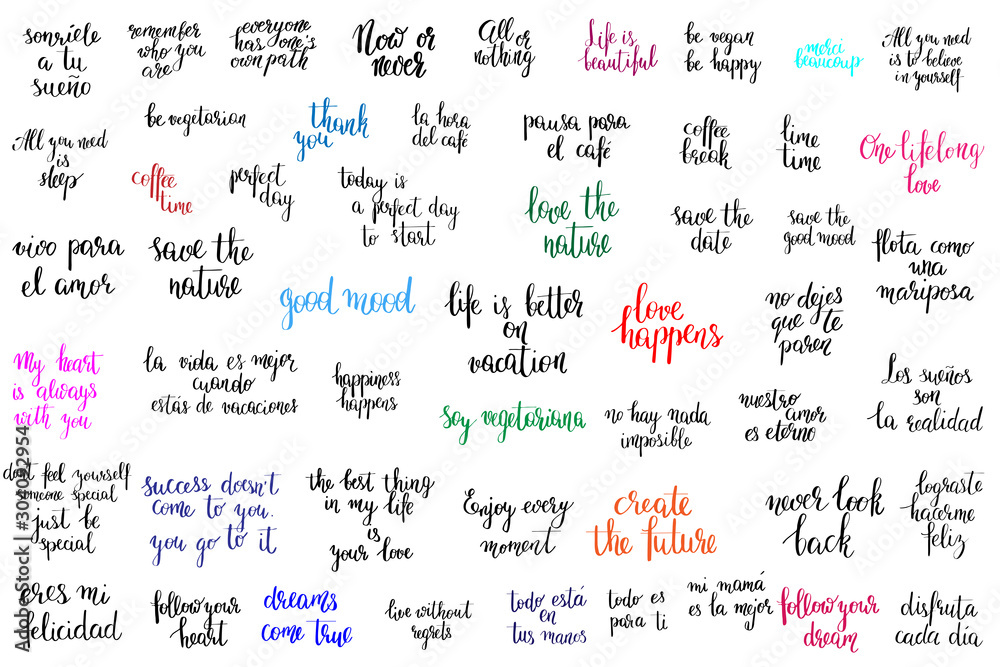 sonríele
a tu
sueño
remember
who you
are
everyone
has one's
own path
Now or
never
All or
nothing
Life is
beautiful
be vegan
be happy
merci
beaucoup
All you need
is to believe
in yourself
All you need
is
sleep
be vegetarian
thank
you
la hora
del café
pausa para
el café
coffee
break
lime
time
One lifelong
love
coffee
time
perfect
day
today is
a perfect day
to start
love the
nature
save the
date
save the
good mood
flota como
una
mariposa
vivo para
el amor
save the
nature
good mood
life is better
on
vacation
love
happens
no dejes
que te
paren
My heart
is always
with you
la vida es mejor
cuando
estás de vacaciones
happiness
happens
soy vegetariana
no hay nada
imposible
nuestro
amor
es eterno
Los sueños
son
la realidad
don't feel yourself
someone special
just be
special
success doesn't
come to you.
you go to it
the best thing
in my life
is
your love
Enjoy every
moment
create
the future
never look
back
lograste
hacerme
feliz
eres mi
felicidad
follow your
heart
dreams
come true
live without
regrets
todo está
en
tus manos
todo es
para ti
mi mamá
es la mejor
follow your
dream
disfruta
cada día
Adobe Stock | 304092954
Adobe Stock